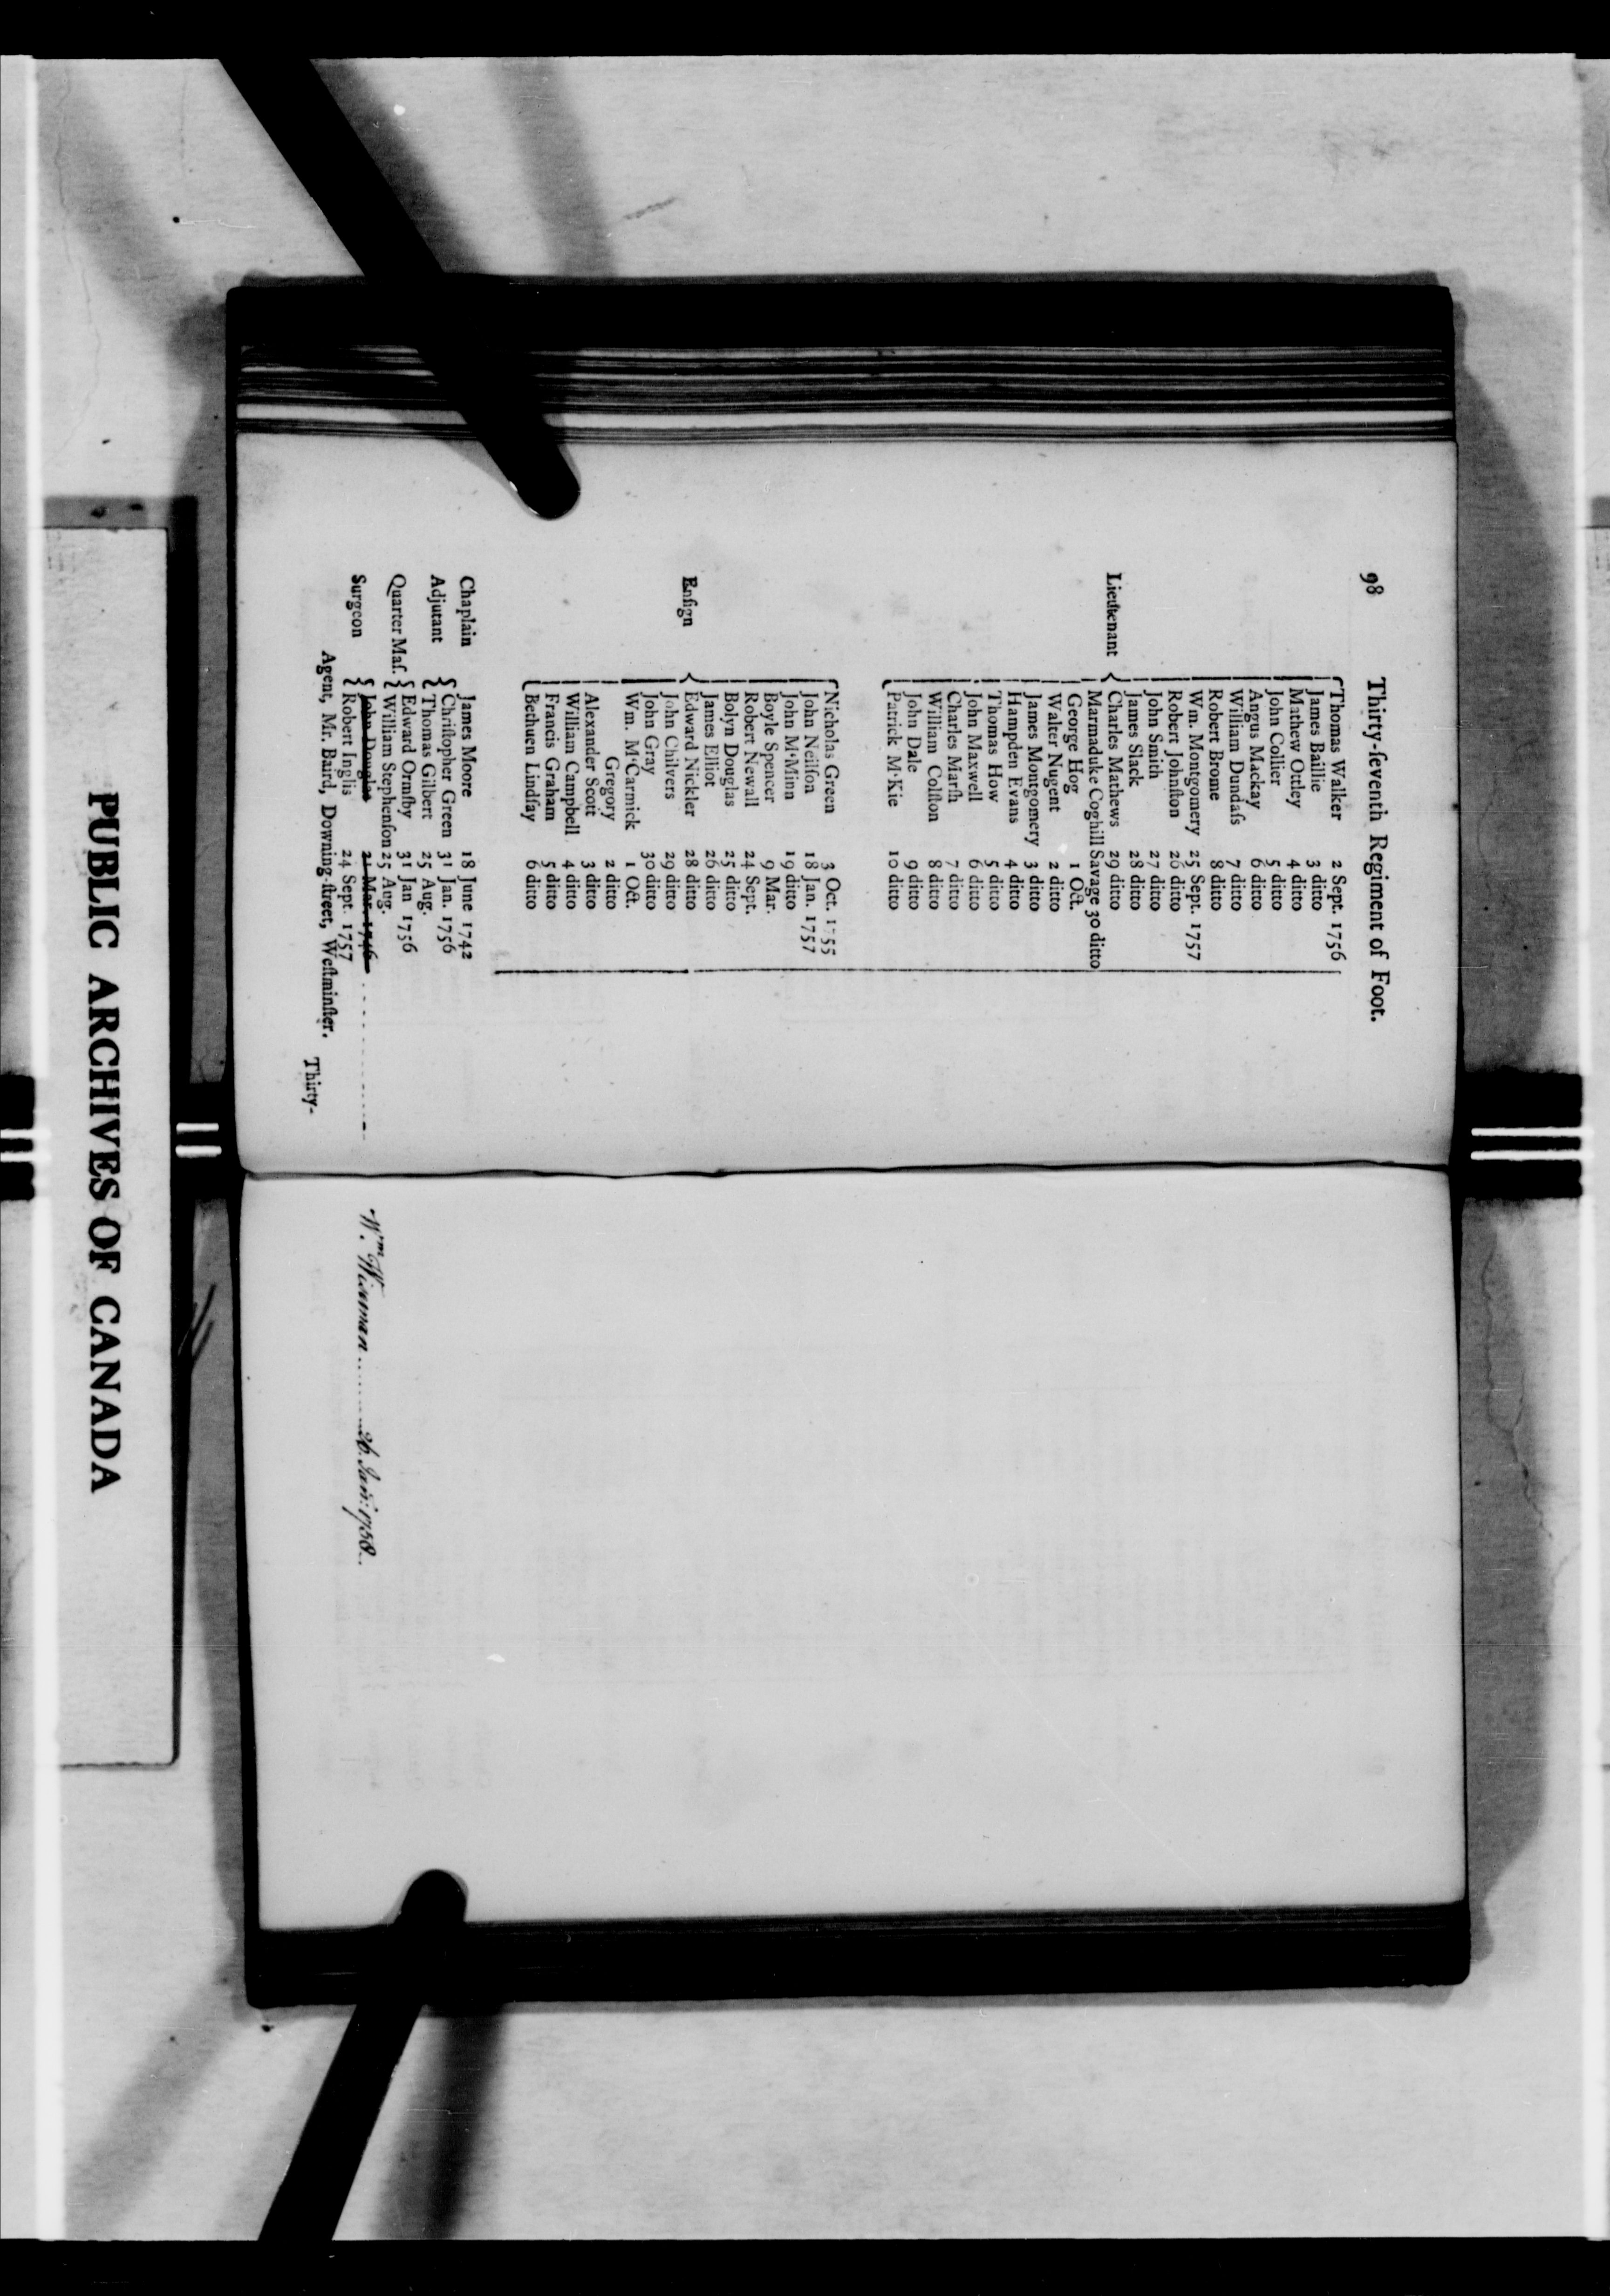 98 Thirty-ſeventh Regiment of Foot.
Lieutenant
Thomas Walker 2 Sept. 1756
James Baillie 3 ditto
Mathew Ottley 4 ditto
John Collier 5 ditto
Angus Mackay 6 ditto
William Dundaſs 7 ditto
Robert Brome 8 ditto
Wm. Montgomery 25 Sept. 1757
Robert Johnſton 26 ditto
John Smith 27 ditto
James Slack 28 ditto
Charles Mathews 29 ditto
Marmaduke Coghill Savage 30 ditto
George Hog 1 Oct.
Walter Nugent 2 ditto
James Montgomery 3 ditto
Hampden Evans 4 ditto
Thomas How 5 ditto
John Maxwell 6 ditto
Charles Marſh 7 ditto
William Colſton 8 ditto
John Dale 9 ditto
Patrick M'Kie 10 ditto
Enſign
Nicholas Green 3 Oct. 1755
John Neilſon 18 Jan. 1757
John M'Minn 19 ditto
Boyle Spencer 9 Mar.
Robert Newall 24 Sept.
Bolyn Douglas 25 ditto
James Elliot 26 ditto
Edward Nickler 28 ditto
John Chilvers 29 ditto
John Gray 30 ditto
Wm. M'Carmick 1 Oct.
Gregory 2 ditto
Alexander Scott 3 ditto
William Campbell 4 ditto
Francis Graham 5 ditto
Bethuen Lindſay 6 ditto
Chaplain James Moore 18 June 1742
Adjutant Chriſtopher Green 31 Jan. 1756
Thomas Gilbert 25 Aug.
Quarter Maſ. Edward Ormſby 31 Jan 1756
William Stephenſon 25 Aug.
Surgeon John Douglas 21 Mar. 1746
Robert Inglis 24 Sept. 1757
Agent, Mr. Baird, Downing-ſtreet, Weſtminſter.
Thirty-
Wm. Wiseman ......... 26. Janr: 1758..
PUBLIC ARCHIVES OF CANADA